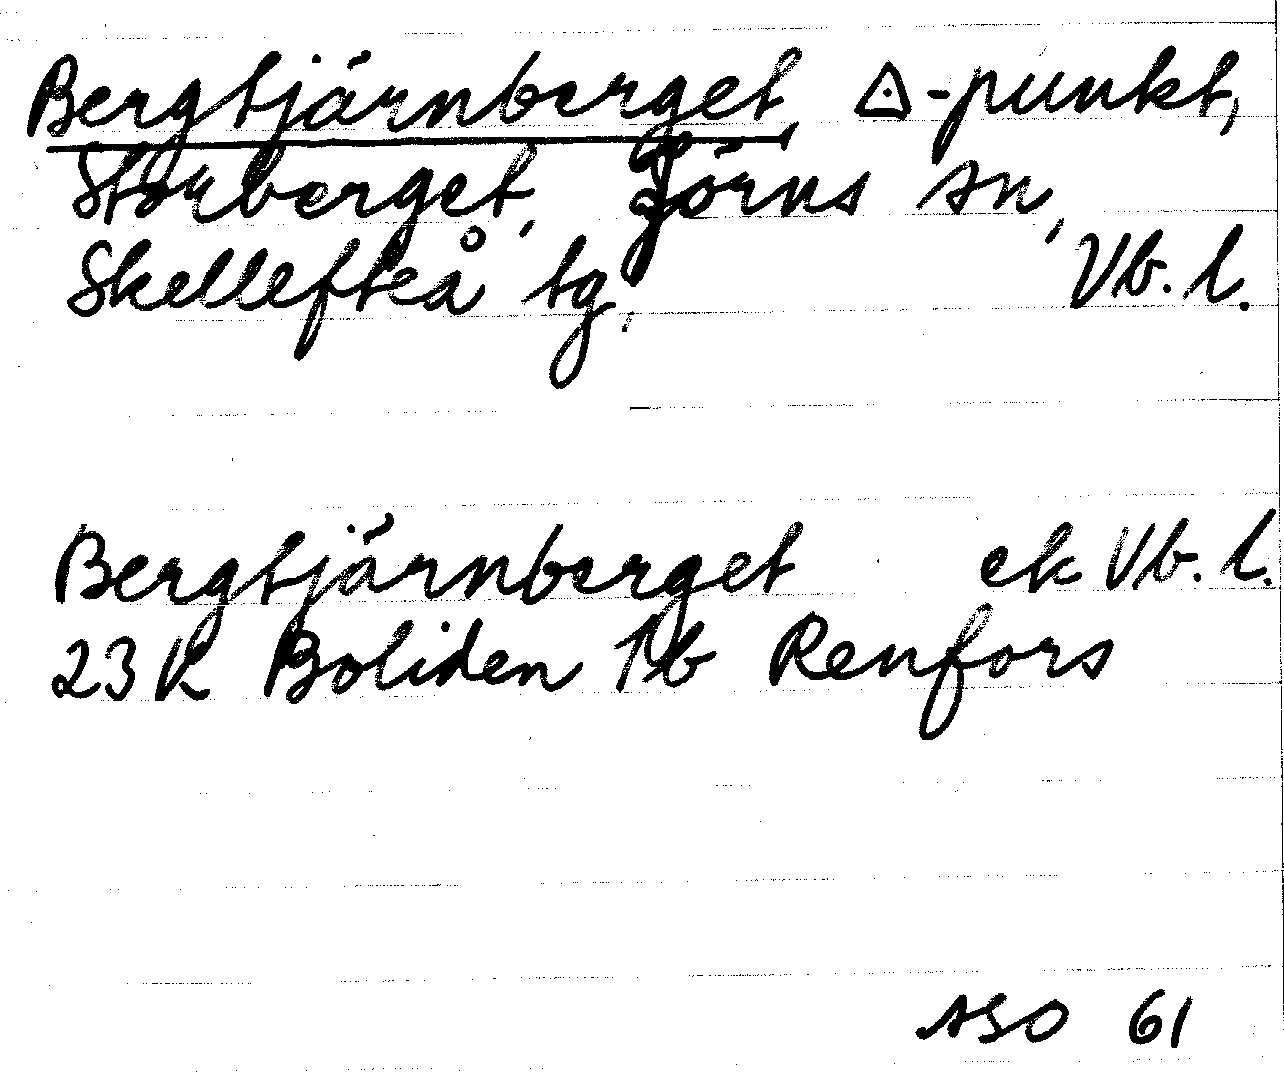 Bergtjärnberget, △-punkt,
Storberget, Jörns sn,
Skellefteå tg, Vb. l.
Bergtjärnberget ek Vb. l.
23 K Boliden 1b Renfors
ASO 61